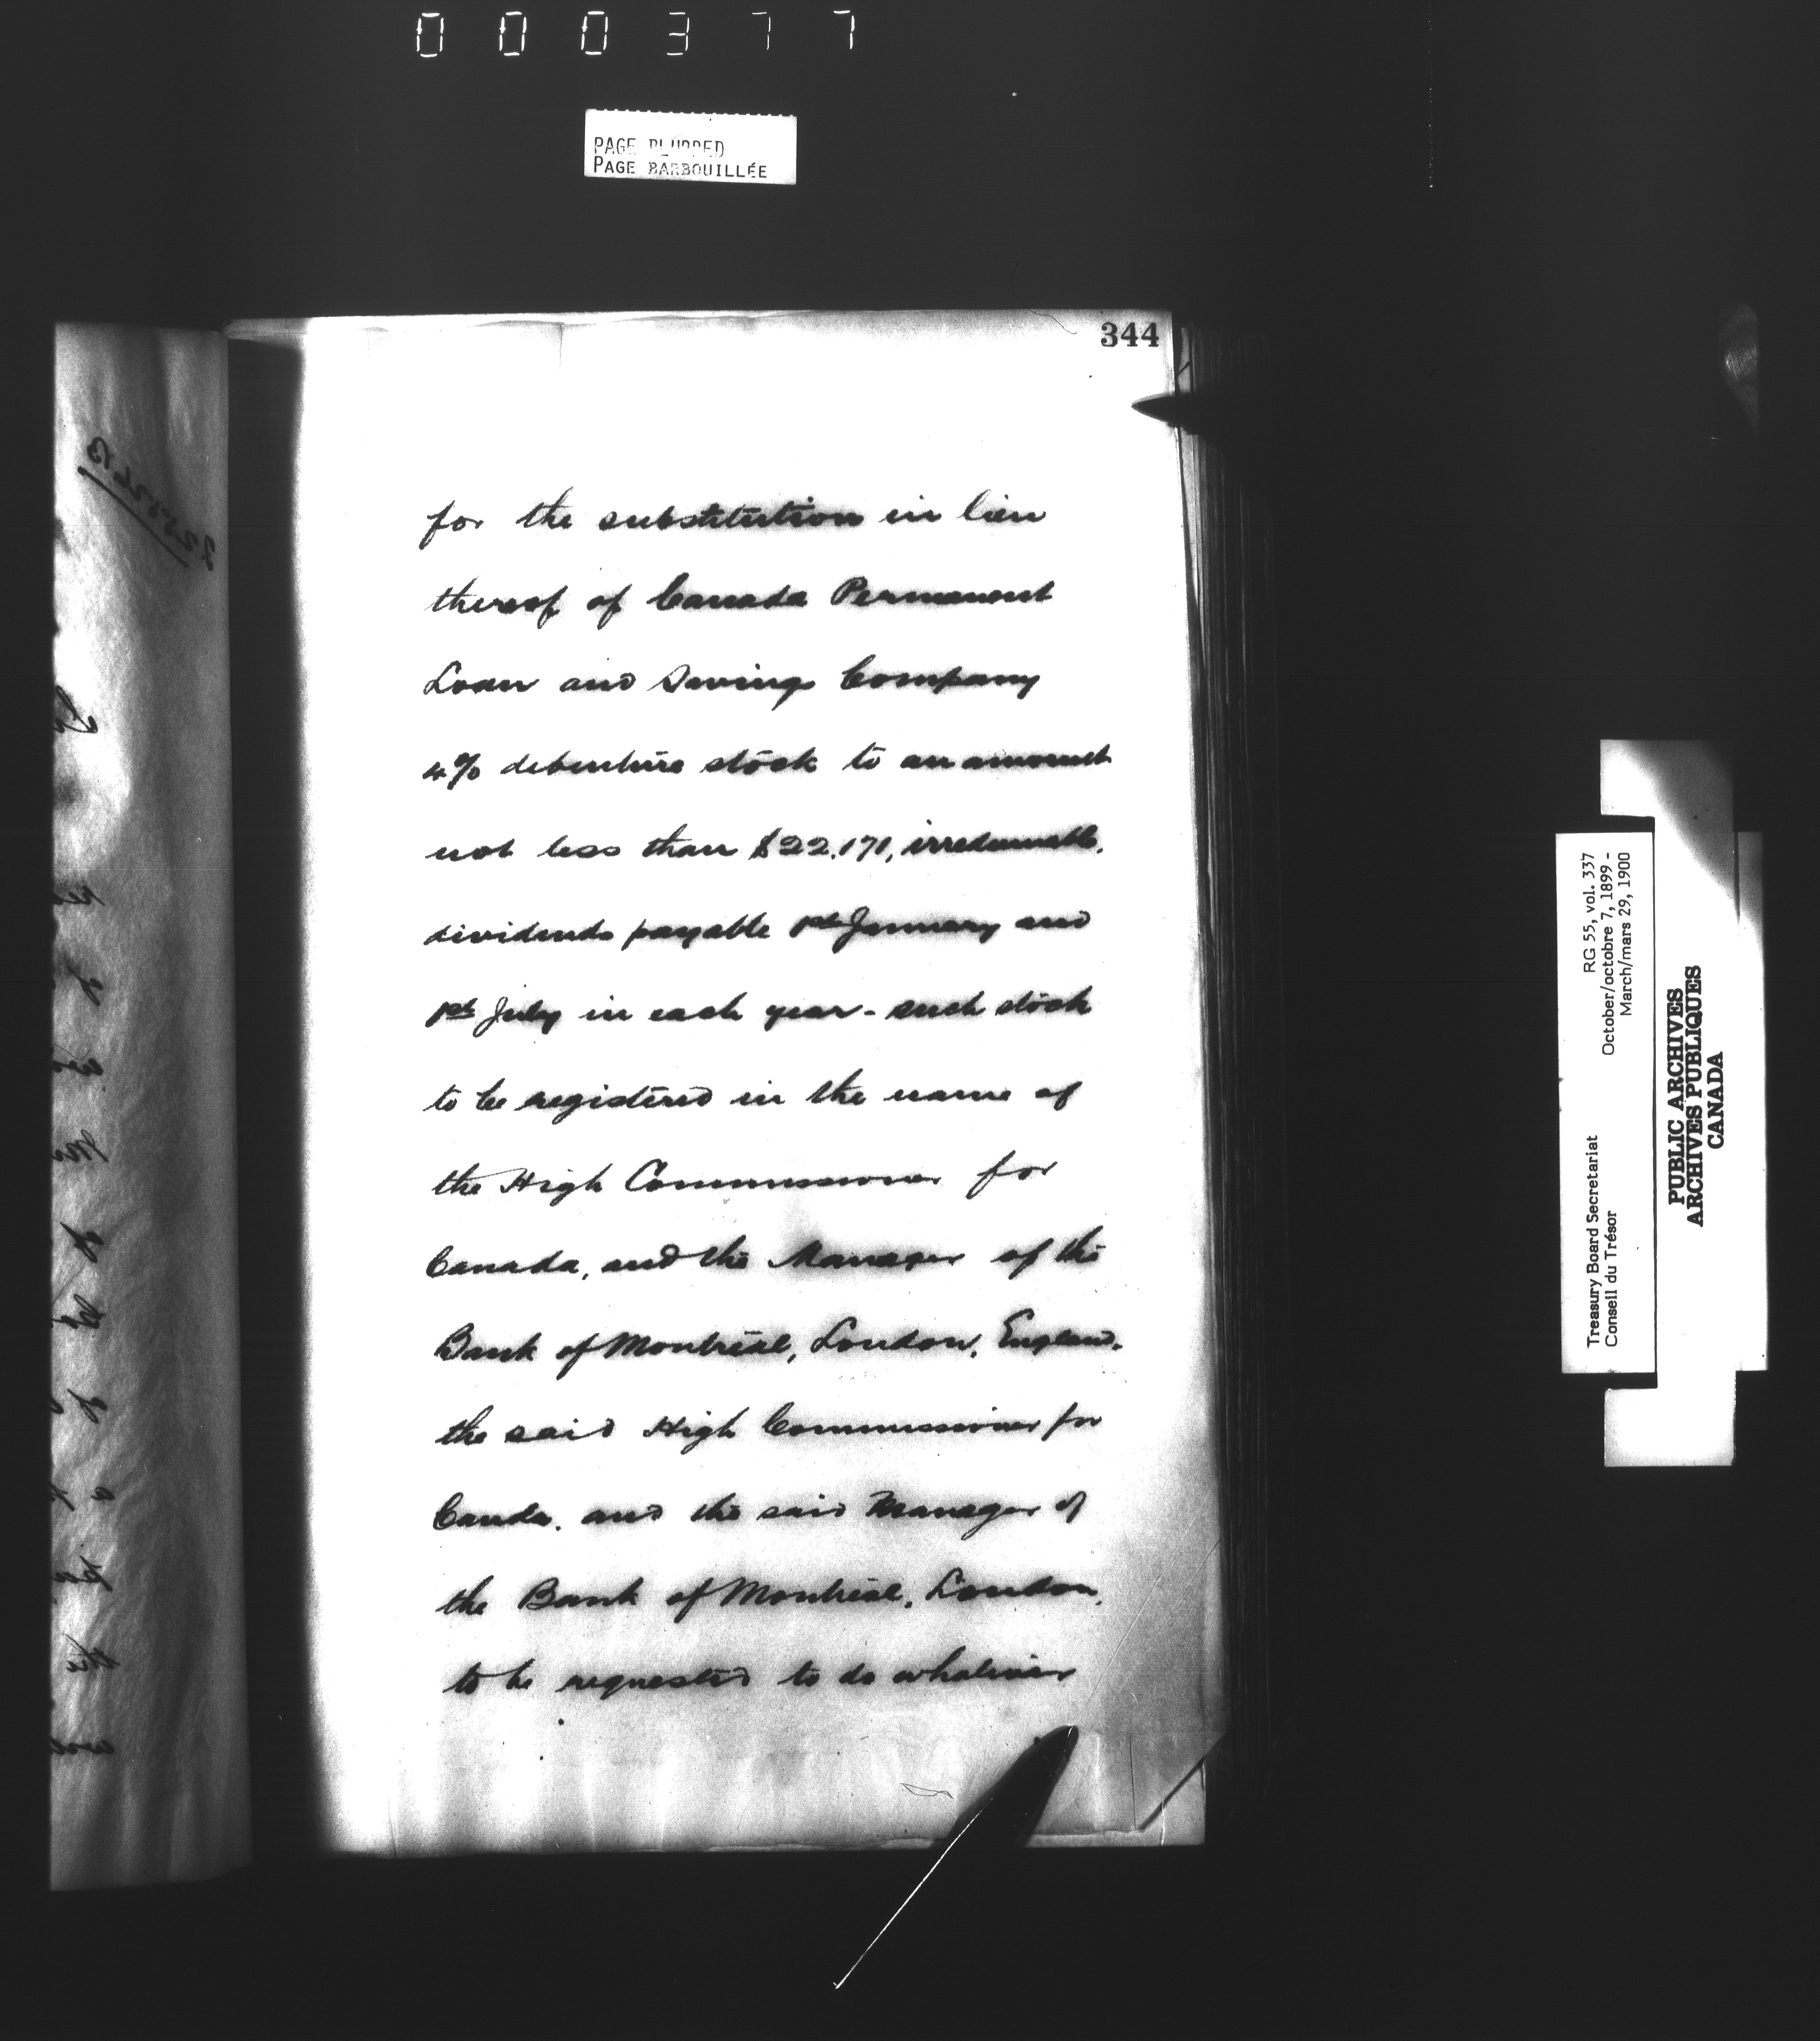 000377
PAGE BLURRED
PAGE BARBOUILLÉE
344
for the substitution in lieu
thereof of Canada Permanent
Loan and Savings Company
4% debenture stock to an amount
not less than £22,171, irredeemable,
dividends payable 1st January and
1st July in each year - such stock
to be registered in the name of
the High Commissioner for
Canada, and the Manager of the
Bank of Montreal, London, England,
the said High Commissioner for
Canada, and the said Manager of
the Bank of Montreal, London,
to be requested to do whatever
Treasury Board Secretariat RG 55, vol. 337
Conseil du Trésor October/octobre 7, 1899 -
March/mars 29, 1900
PUBLIC ARCHIVES
ARCHIVES PUBLIQUES
CANADA